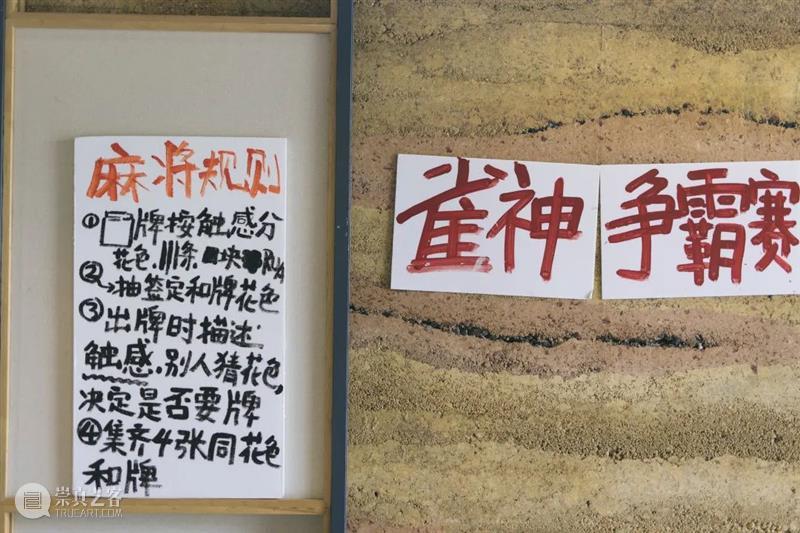 麻将规则
①牌按触感分
花色.条 块
②→抽签定和牌花色
③出牌时描述
触感.别人猜花色,
决定是否要牌
④集齐4张同花色
和牌
雀神 争霸赛
崇真艺客
TRUEART.COM